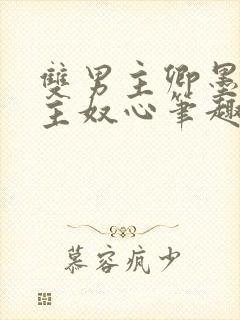 雙男主卿墨
主奴心筆趣
慕容疯少